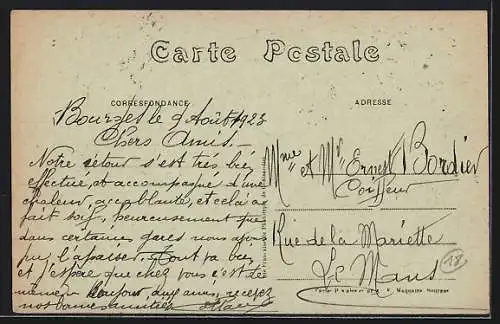 Carte Postale
CORRESPONDANCE
ADRESSE
Bourges le 9 Août 1923
Chers Amis.
Notre retour s'est très bien
effectué, et accompagné d'une
chaleur, accablante, et cela a
fait soif, heureusement que
dans certaines gares nous avons
pu l'apaiser. Tout va bien
et j'espère que chez vous c'est de
même. Bonjour, aux amis, recevez
nos bonnes amitiés
Mme et Mr Ernest Bordier
Coiffeur
Rue de la Mariette
Le Mans
18